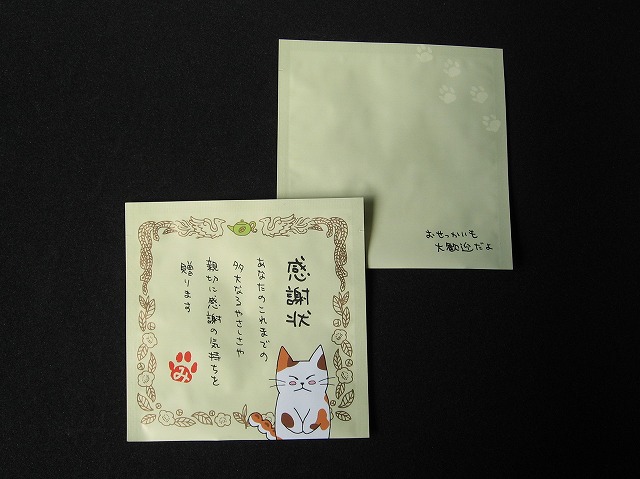 感謝状
あなたのこれまでの
多大なるやさしさや
親切に感謝の気持ちを
贈ります
み
おせっかいも
大歓迎だよ